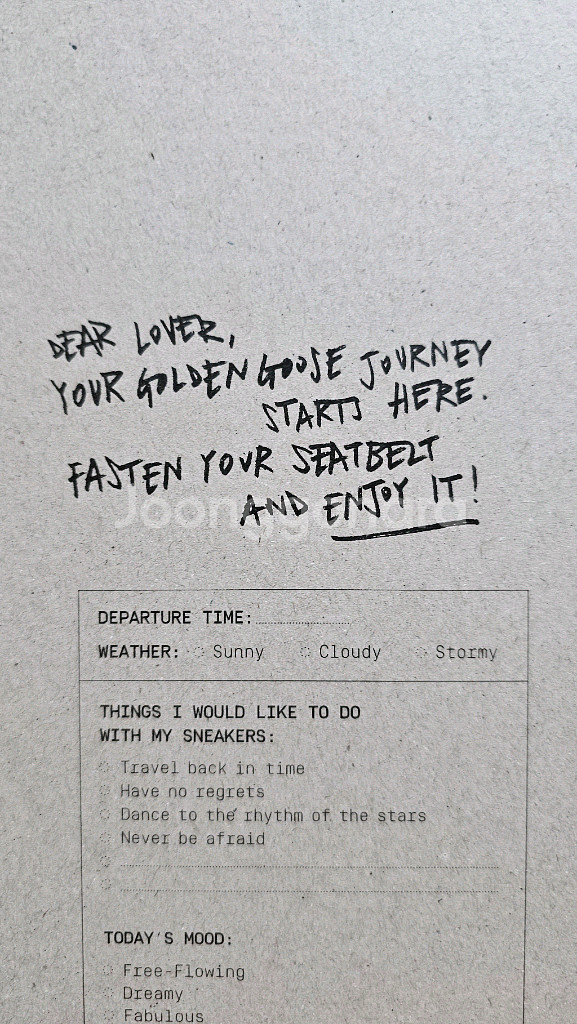 DEAR LOVER,
YOUR GOLDEN GOOSE JOURNEY
STARTS HERE.
FASTEN YOUR SEATBELT
AND ENJOY IT!
Joonggonara
DEPARTURE TIME:
WEATHER: Sunny Cloudy Stormy
THINGS I WOULD LIKE TO DO
WITH MY SNEAKERS:
Travel back in time
Have no regrets
Dance to the rhythm of the stars
Never be afraid
TODAY'S MOOD:
Free-Flowing
Dreamy
Fabulous